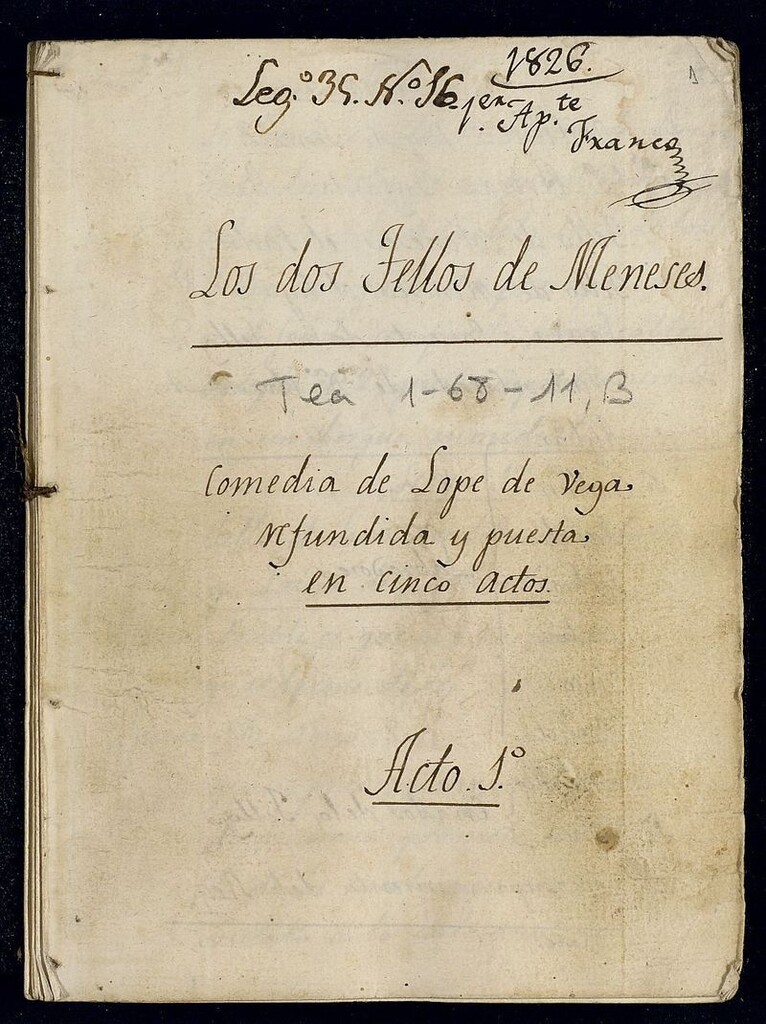 1826.
1
Leg.º 35. N.º 16.
1.er Ap.te
Franco
Los dos Tellos de Meneses.
Tea 1-68-11, B
Comedia de Lope de Vega
refundida y puesta
en cinco actos.
Acto. 1.º